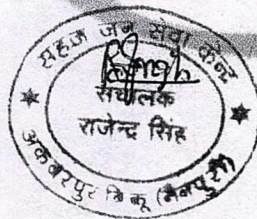 सहज जन सेवा केन्द्र
संचालक
राजेन्द्र सिंह
अकबरपुर बिकू (मैनपुरी)